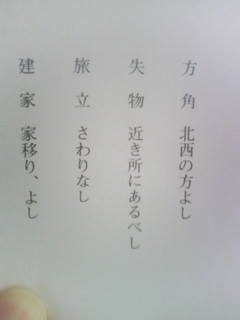 方角 北西の方よし
失物 近き所にあるべし
旅立 さわりなし
建家 家移り、よし